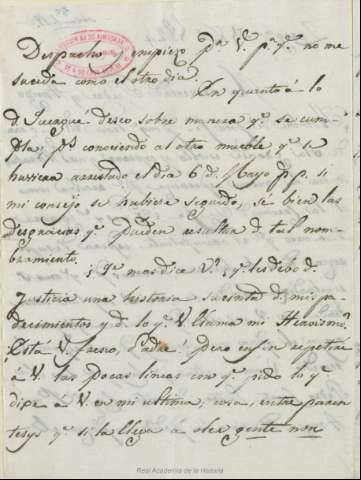 Despacho y empiezo pr. V. pa. q. no me
suceda como el otro dia.
En quanto á lo
d. deseo sobre manera q. se cum-
pla, ps. conociendo al otro mueble q. se
huviera arrestado el dia 6 d. Mayo p.p. si
mi consejo se hubiese seguido, sé bien las
desgracias q. pueden resultar d. tal nom-
bramiento.
¡Qe. mas dice V., q. les debo d.
Justicia una historia sucinta d. mis pa-
decimientos y d. lo q. V. llama mi Heroismo.
Está V. fresco, Padre! pero en fin repetiré
á V. las pocas lineas con q. pido lo q.
dixe á V. en mi ultima; cosa, entre paren
tesys q. si la llega á oler gente non
Real Academia de la Historia